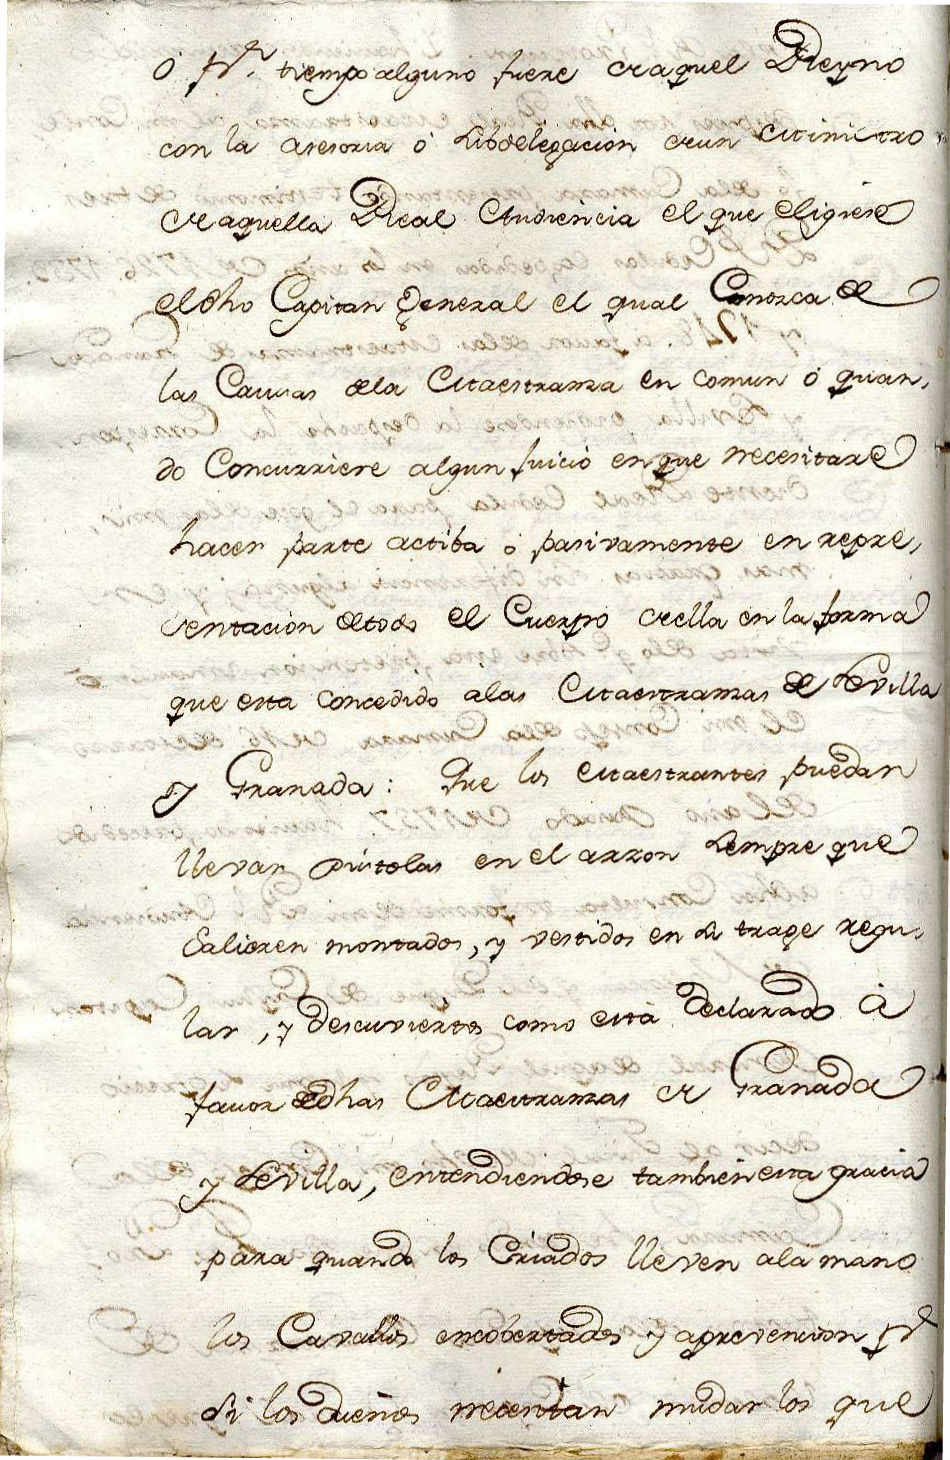 ó pr. tiempo alguno fuere de aquel Reyno
con la Asesoria ó Subdelegacion de un Ministro
de aquella Real Audiencia el que eligiese
el dho Capitan General el qual Conozca de
las Causas de la Maestranza en comun ó quan,
do Concurriere algun juicio en que necesitare
hacer parte actiba ó pasivamente en repre,
sentacion de todo el Cuerpo de ella en la forma
que esta concedido a las Maestranzas de Sevilla
y Granada: Que los Maestrantes puedan
llevar pistolas en el arzon siempre que
Salieren montados, y vestidos en su trage regu,
lar, y descuviertos como está declarado á
favor de dhas Maestranzas de Granada
y Sevilla, entendiendose tambien esta gracia
para quando los Criados lleven a la mano
los Cavallos encobertados y aprevencion pr.
si los dueños necesitan mudar los que